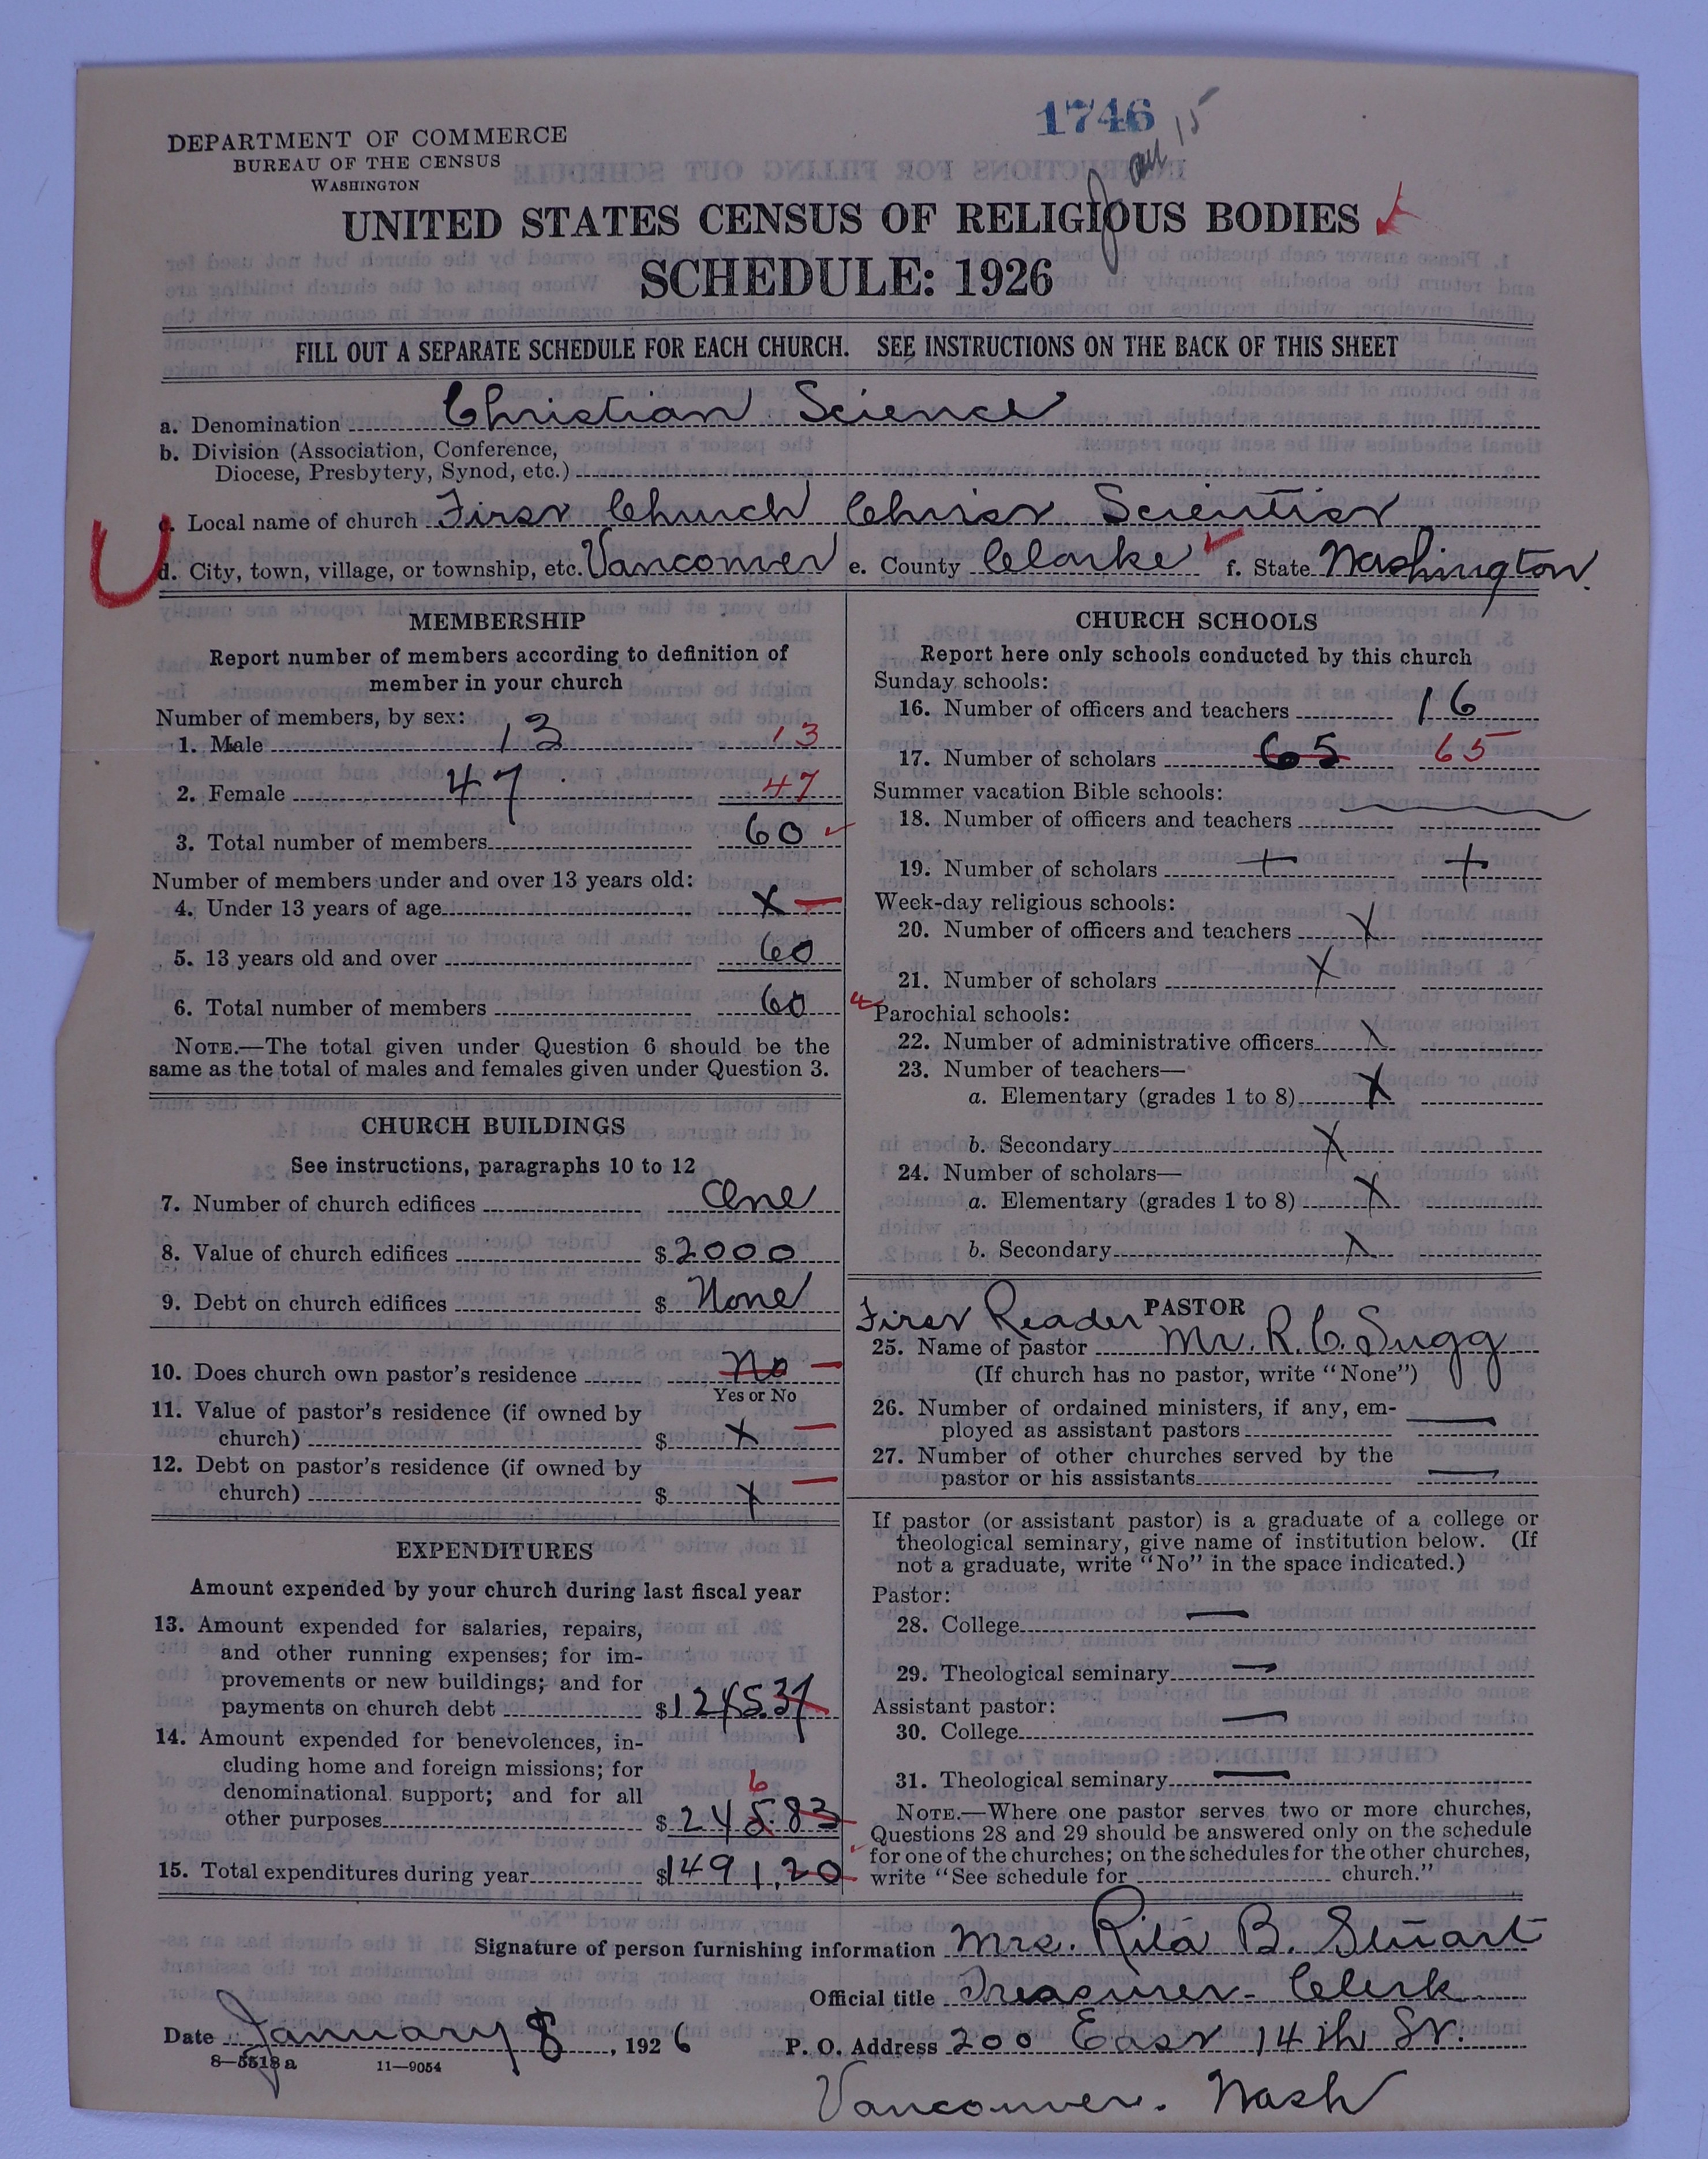 1746
Jan 15
DEPARTMENT OF COMMERCE
BUREAU OF THE CENSUS
WASHINGTON
UNITED STATES CENSUS OF RELIGIOUS BODIES
SCHEDULE: 1926
FILL OUT A SEPARATE SCHEDULE FOR EACH CHURCH. SEE INSTRUCTIONS ON THE BACK OF THIS SHEET
a. Denomination Christian Science
b. Division (Association, Conference,
Diocese, Presbytery, Synod, etc.)
c. Local name of church First Church Christ Scientist
d. City, town, village, or township, etc. Vancouver e. County Clarke f. State Washington.
MEMBERSHIP
Report number of members according to definition of
member in your church
Number of members, by sex:
1. Male 13 13
2. Female 47 47
3. Total number of members 60
Number of members under and over 13 years old:
4. Under 13 years of age X —
5. 13 years old and over 60
6. Total number of members 60
NOTE.—The total given under Question 6 should be the
same as the total of males and females given under Question 3.
CHURCH BUILDINGS
See instructions, paragraphs 10 to 12
7. Number of church edifices One
8. Value of church edifices $2000
9. Debt on church edifices $ None
10. Does church own pastor's residence No —
Yes or No
11. Value of pastor's residence (if owned by
church) $ X —
12. Debt on pastor's residence (if owned by
church) $ X —
EXPENDITURES
Amount expended by your church during last fiscal year
13. Amount expended for salaries, repairs,
and other running expenses; for im-
provements or new buildings; and for
payments on church debt $1245.37
14. Amount expended for benevolences, in-
cluding home and foreign missions; for
denominational support; and for all
6
other purposes $245.83
15. Total expenditures during year $1491.20
CHURCH SCHOOLS
Report here only schools conducted by this church
Sunday schools:
16. Number of officers and teachers 16
17. Number of scholars 65 65
Summer vacation Bible schools:
18. Number of officers and teachers
19. Number of scholars + +
Week-day religious schools:
20. Number of officers and teachers X
21. Number of scholars X
Parochial schools:
22. Number of administrative officers X
23. Number of teachers—
a. Elementary (grades 1 to 8) X
b. Secondary X
24. Number of scholars—
a. Elementary (grades 1 to 8) X
b. Secondary X
First Reader PASTOR
25. Name of pastor Mr. R. C. Sugg
(If church has no pastor, write "None")
26. Number of ordained ministers, if any, em-
ployed as assistant pastors —
27. Number of other churches served by the
pastor or his assistants —
If pastor (or assistant pastor) is a graduate of a college or
theological seminary, give name of institution below. (If
not a graduate, write "No" in the space indicated.)
Pastor:
28. College —
29. Theological seminary —
Assistant pastor:
30. College —
31. Theological seminary —
NOTE.—Where one pastor serves two or more churches,
Questions 28 and 29 should be answered only on the schedule
for one of the churches; on the schedules for the other churches,
write "See schedule for church."
Signature of person furnishing information Mrs. Rita B. Stuart
Official title Treasurer - Clerk
Date January 8, 1926 P. O. Address 200 East 14th St.
8—5518a 11—9054
Vancouver. Wash